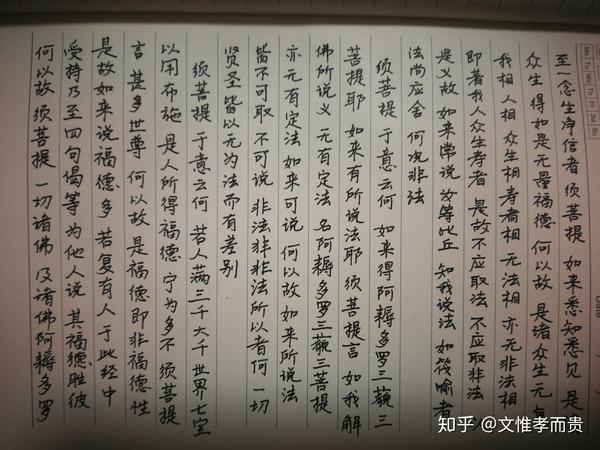 至一念生净信者 须菩提 如来悉知悉见 是
众生 得如是无量福德 何以故 是诸众生 无复
我相 人相 众生相 寿者相 无法相 亦无非法相
即著我人众生寿者 是故不应取法 不应取非法
是义故 如来常说 汝等比丘 知我说法 如筏喻者
法尚应舍 何况非法
须菩提 于意云何 如来得阿耨多罗三藐三
菩提耶 如来有所说法耶 须菩提言 如我解
佛所说义 无有定法 名阿耨多罗三藐三菩提
亦无有定法 如来可说 何以故 如来所说法
皆不可取 不可说 非法 非非法 所以者何 一切
贤圣皆以无为法而有差别
须菩提 于意云何 若人满三千大千世界七宝
以用布施 是人所得福德 宁为多不 须菩提
言 甚多 世尊 何以故 是福德即非福德性
是故如来说福德多 若复有人 于此经中
受持乃至四句偈等 为他人说 其福德胜彼
何以故 须菩提 一切诸佛 及诸佛阿耨多罗
Mo Tu We Th Fr Sa Su
Date
知乎 @文惟孝而贵